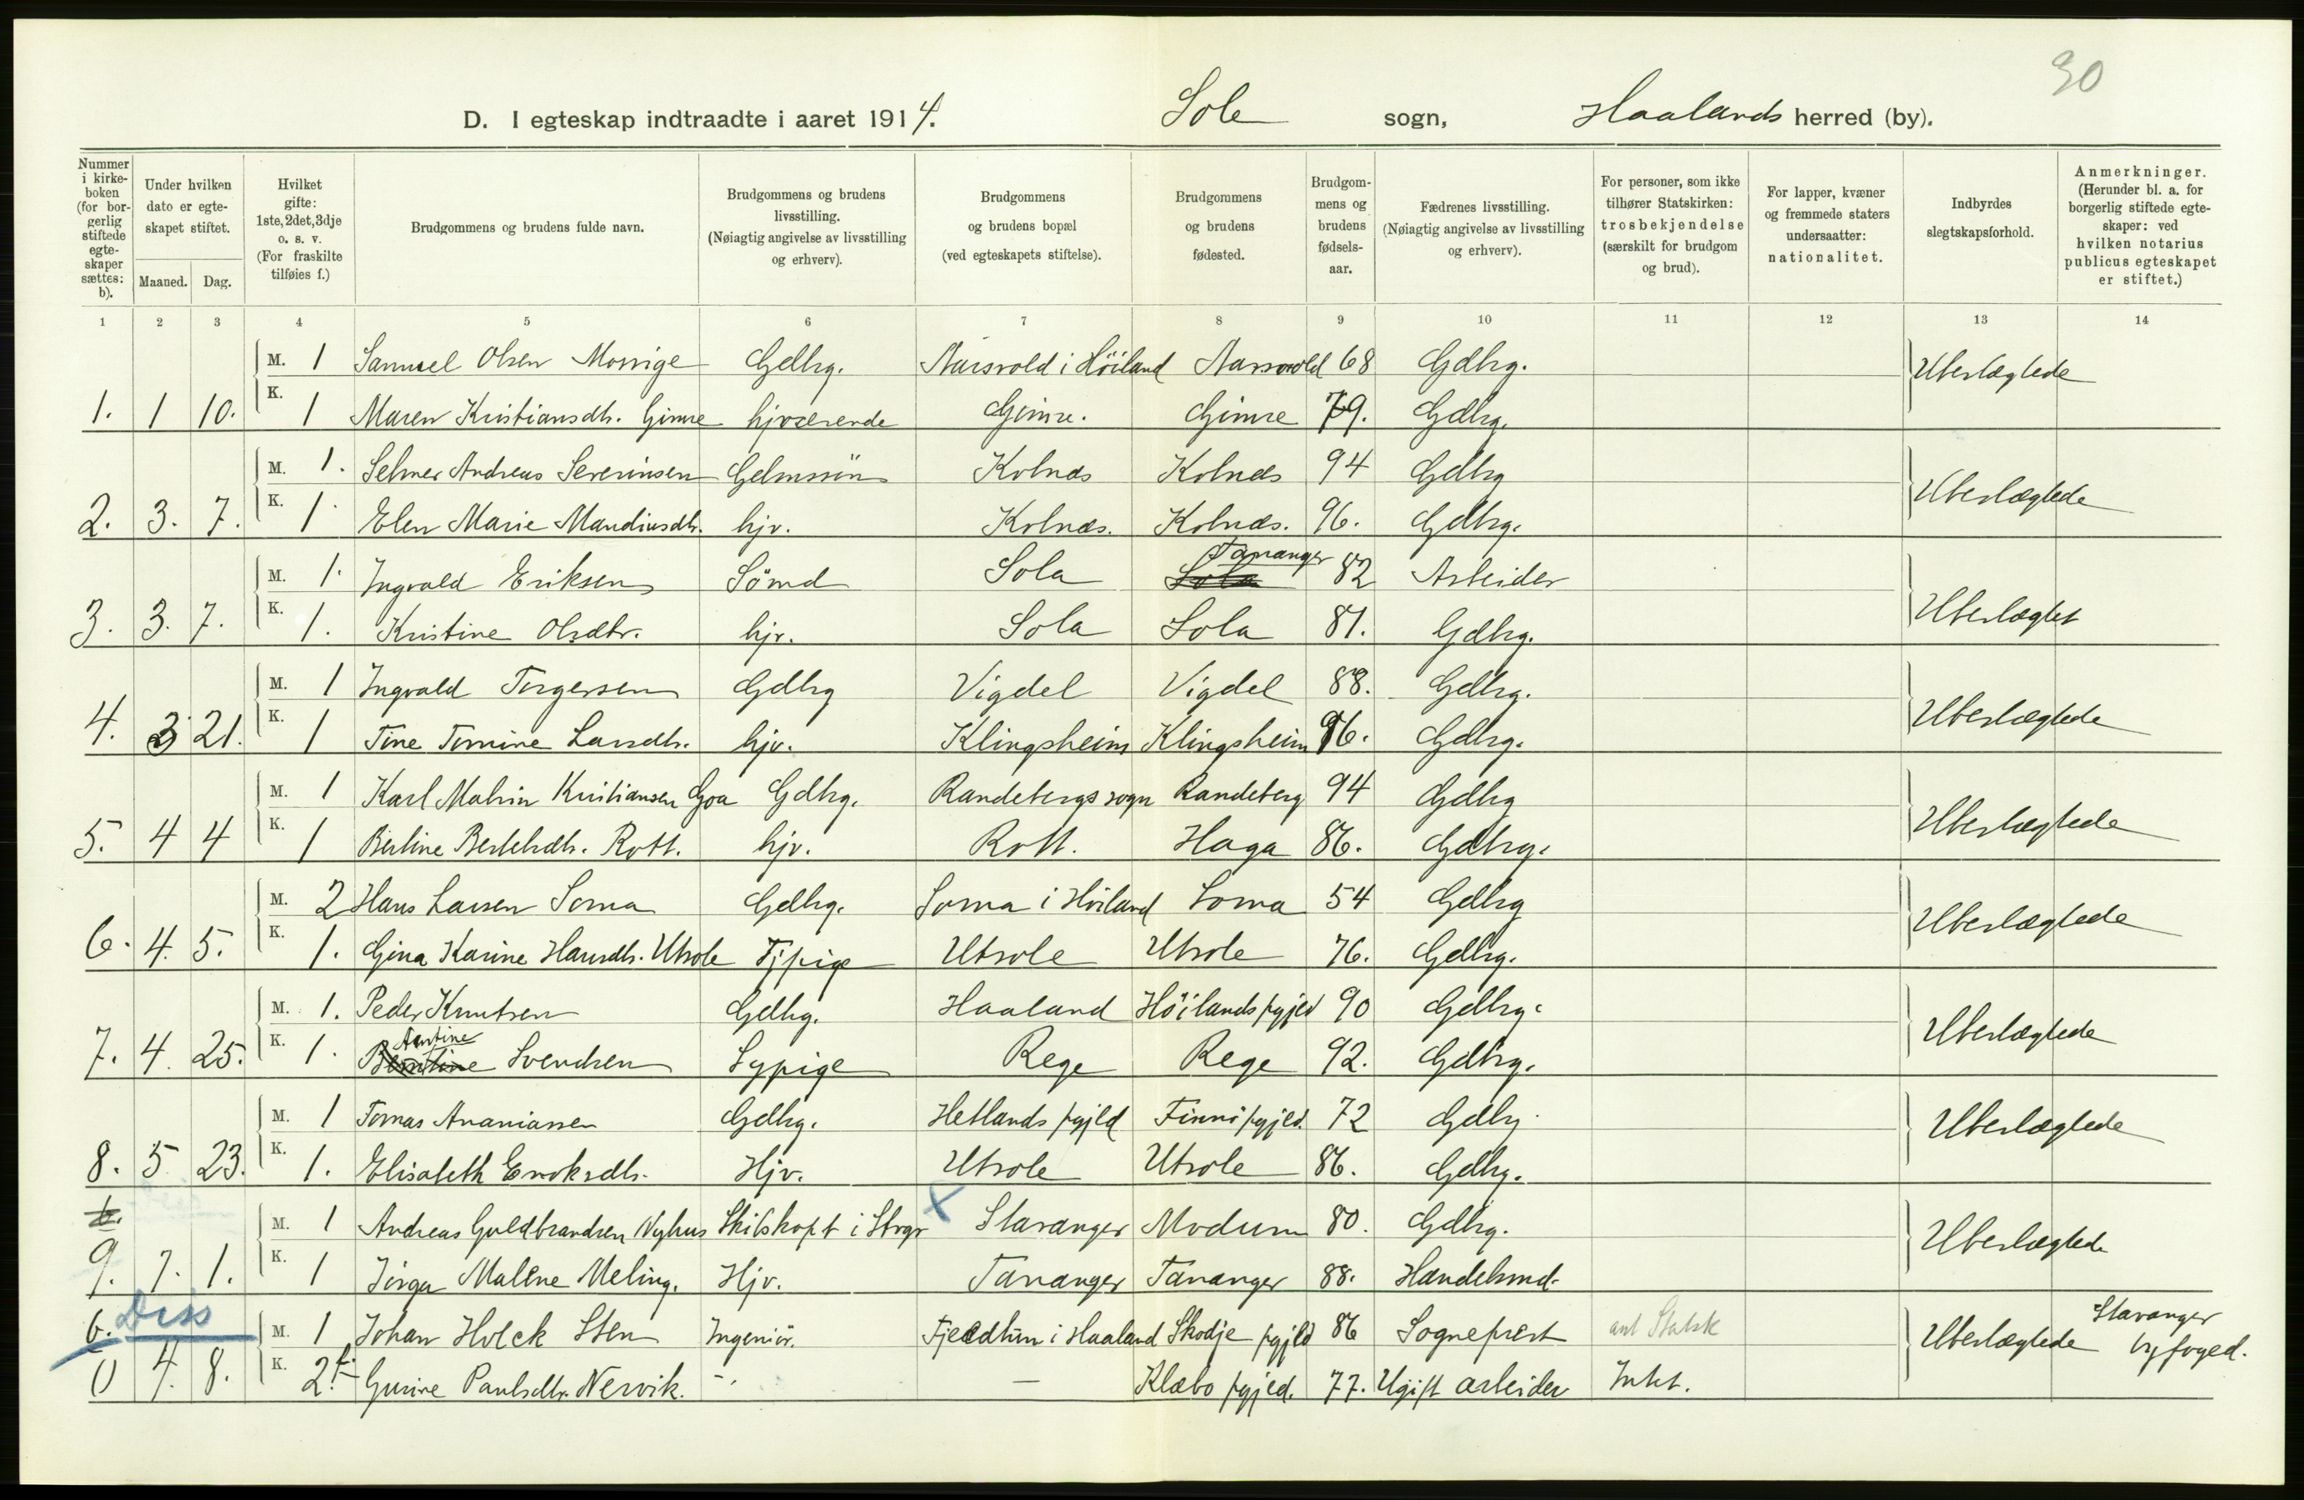 30
D. I egteskap indtraadte i aaret 1914. Sole sogn, Haalands herred (by).
Nummer i kirkeboken (for borgerlig stiftede egteskaper sættes: b).
Under hvilken dato er egteskapet stiftet.
Maaned. Dag.
Hvilket gifte: 1ste, 2det, 3dje o. s. v. (For fraskilte tilføies f.)
Brudgommens og brudens fulde navn.
Brudgommens og brudens livsstilling. (Nøiagtig angivelse av livsstilling og erhverv).
Brudgommens og brudens bopæl (ved egteskapets stiftelse).
Brudgommens og brudens fødested.
Brudgommens og brudens fødselsaar.
Fædrenes livsstilling. (Nøiagtig angivelse av livsstilling og erhverv).
For personer, som ikke tilhører Statskirken: trosbekjendelse (særskilt for brudgom og brud).
For lapper, kvæner og fremmede staters undersaatter: nationalitet.
Indbyrdes slegtskapsforhold.
Anmerkninger. (Herunder bl. a. for borgerlig stiftede egteskaper: ved hvilken notarius publicus egteskapet er stiftet.)
1 2 3 4 5 6 7 8 9 10 11 12 13 14
M. 1 Samuel Olsen Morrige Gdbrg. Aarsvold i Höiland Aarsvold 68 Gdbrg. Ubeslægtede
1. 1 10. K. 1 Maren Kristiansdtr. Gimre hjværende Gimre. Gimre 79. Gdbrg.
M. 1. Selmer Andreas Severinsen Gdbrssön Kolnæs Kolnæs 94 Gdbrg Ubeslægtede
2. 3. 7. K. 1 Elen Marie Mandiusdtr. hjv. Kolnæs. Kolnæs. 96. Gdbrg.
M. 1. Ingvald Eriksen Sömd Sola Sola Tananger 82 Arbeider Ubeslægtet
3. 3. 7. K. 1. Kristine Olsdtr. hjv. Sola Sola 81. Gdbrg.
M. 1 Ingvald Torgersen Gdbrg Vigdel Vigdel 88. Gdbrg. Ubeslægtede
4. 3 21. K. 1 Tine Tomine Larsdtr. hjv. Klingsheim Klingsheim 96. Gdbrg.
M. 1 Karl Malvin Kristiansen Goa Gdbrg. Randebergs sogn Randeberg 94 Gdbrg Ubeslægtede
5. 4 4 K. 1 Bertine Bertelsdtr. Rott. hjv. Rott. Haga 86. Gdbrg.
M. 2 Hans Larsen Soma Gdbrg. Soma i Höiland Soma 54 Gdbrg Ubeslægtede
6. 4. 5. K. 1. Gina Karine Hansdtr. Utsole Tjpige Utsole Utsole 76. Gdbrg.
M. 1. Peder Knutsen Gdbrg. Haaland Höilands pgjed 90 Gdbrg. Ubeslægtede
7. 4. 25. K. 1. Berntine Antine Svendsen Sypige Rege Rege 92. Gdbrg.
M. 1 Tomas Ananiassen Gdbrg. Hetlands pgjeld Finnö pgjed. 72 Gdbrg. Ubeslægtede
8. 5 23. K. 1. Elisabeth Enoksdtr. Hjv. Utsole Utsole 86. Gdbrg.
b. M. 1 Andreas Guldbrandsen Nyhus Skibskapt i Stvgr X Stavanger Modum 80. Gdbrg. Ubeslægtede
9. 7. 1. K. 1 Jörga Malene Meling. Hjv. Tananger Tananger 88. Handelsmd.
b. Diss M. 1 Johan Holck Sten Ingeniör. Fjeldtun i Haaland Skodje pgjld 86 Sogneprest ant Statsk Ubeslægtede Stavanger byfoged.
0 4. 8. K. 2 f. Gurine Paulsdtr. Nervik. -"- — Klæbo pgjed. 77. Ugift arbeider Intet.